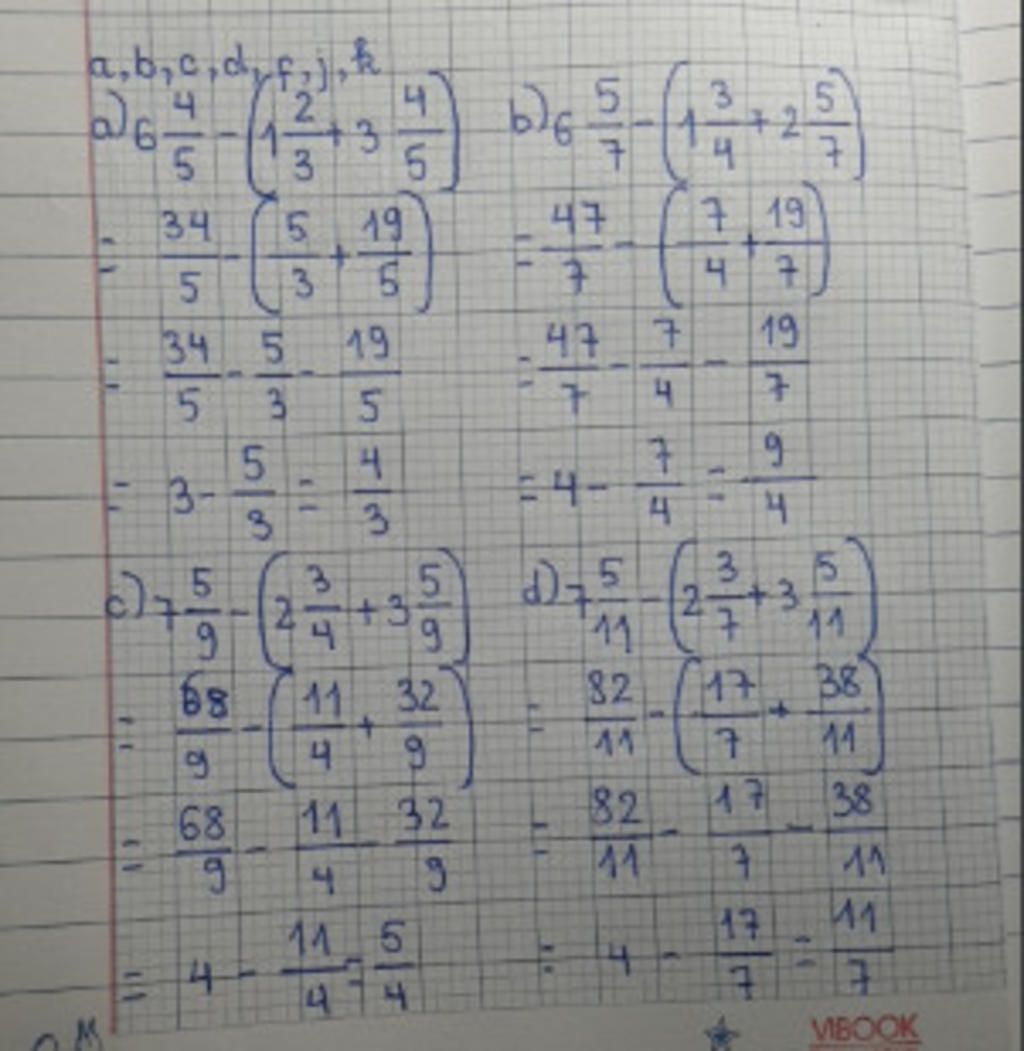 a, b, c, d, f, j, k
a) 6 4/5 - (1 2/3 + 3 4/5)
= 34/5 - (5/3 + 19/5)
= 34/5 - 5/3 - 19/5
= 3 - 5/3 = 4/3
b) 6 5/7 - (1 3/4 + 2 5/7)
= 47/7 - (7/4 + 19/7)
= 47/7 - 7/4 - 19/7
= 4 - 7/4 = 9/4
c) 7 5/9 - (2 3/4 + 3 5/9)
= 68/9 - (11/4 + 32/9)
= 68/9 - 11/4 - 32/9
= 4 - 11/4 = 5/4
d) 7 5/11 - (2 3/7 + 3 5/11)
= 82/11 - (17/7 + 38/11)
= 82/11 - 17/7 - 38/11
= 4 - 17/7 = 11/7
VIBOOK